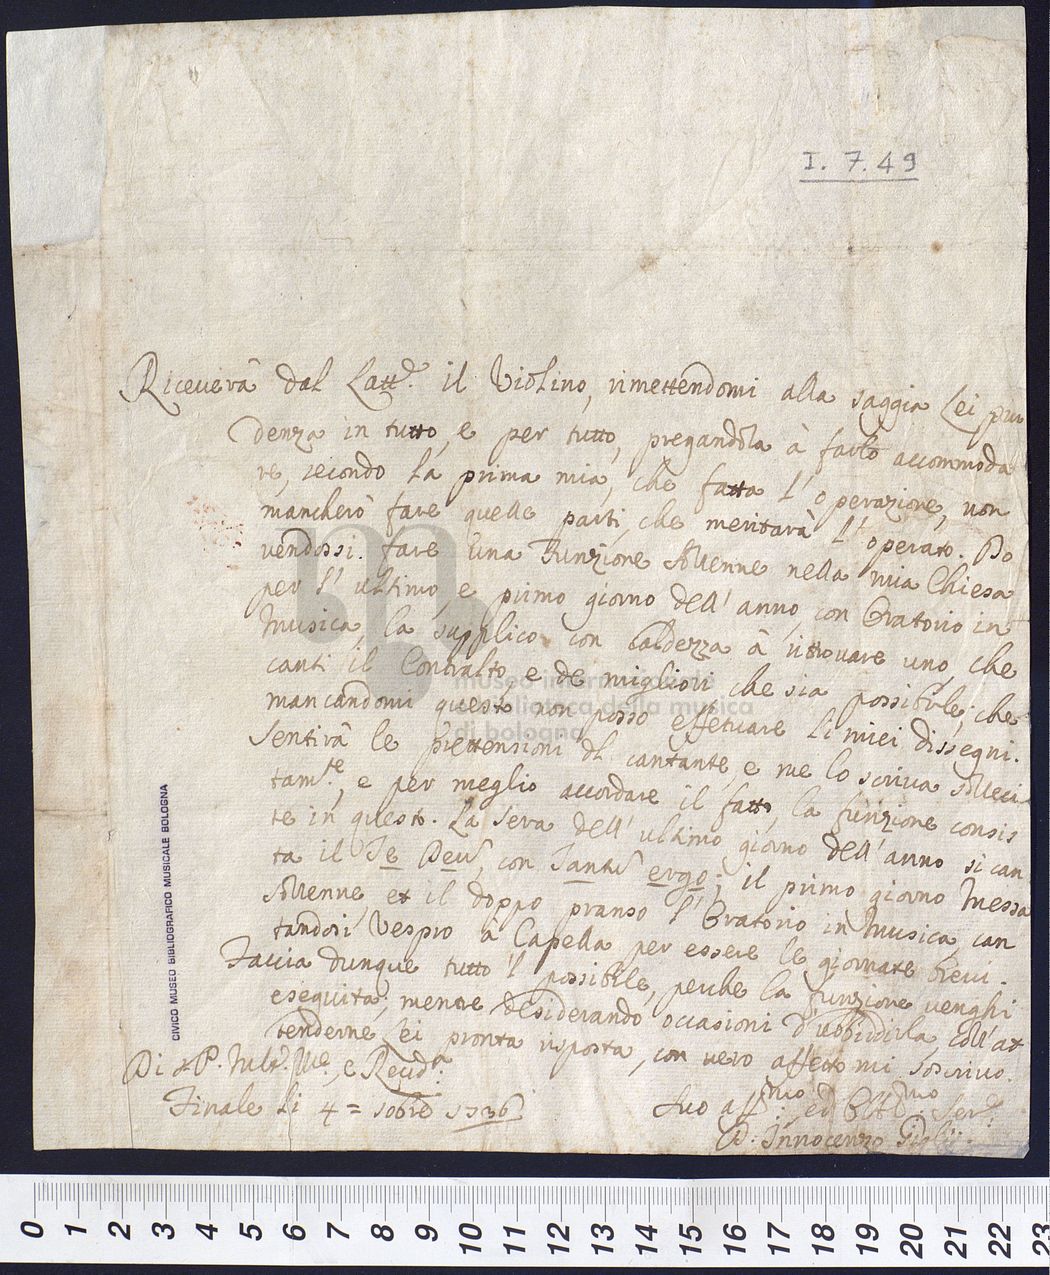 I. 7.49
Riceuerà dal Latt.e il Violino, rimettendomi alla saggia Lei pru
denza in tutto, e per tutto, pregandola à farlo accommoda
re, secondo la prima mia, che fatta l'operazione, non
mancherò fare quelle parti, che meritarà l'operato. Do
vendossi fare una Funzione sollenne nella mia Chiesa
per l'ultimo, e primo giorno dell'anno, con Oratorio in
Musica, la supplico con caldezza à ritrouare uno, che
canti il Contralto, e de migliori che sia possibile; che
mancandomi questo non posso effettuare li miei dissegni.
Sentirà le prettensioni del cantante, e me lo scriua solleci
tam.te, e per meglio accordare il fatto, la funzione consis
te in questo. La sera dell'ultimo giorno dell'anno si can
ta il Te Deum, con Tantum ergo; il primo giorno Messa
sollenne, et il doppo pranso l'Oratorio in Musica, can
tandosi Vespro à Capella per essere le giornate breui.
Faccia dunque tutto 'l possibile, perche la funzione uenghi
eseguita; mentre desiderando occasioni d'ubbidirla, coll'at
tenderne Lei pronta risposta, con uero affetto mi soscriuo.
Di V. P. M.to Ill.re, e Reud.a
Finale li 4 = 10bre 1736
Suo aff.mo ed Obb.mo Ser.e
D. Innocenzo Gigli
CIVICO MUSEO BIBLIOGRAFICO MUSICALE BOLOGNA
museo internazionale
e biblioteca della musica
di bologna
0 1 2 3 4 5 6 7 8 9 10 11 12 13 14 15 16 17 18 19 20 21 22 23